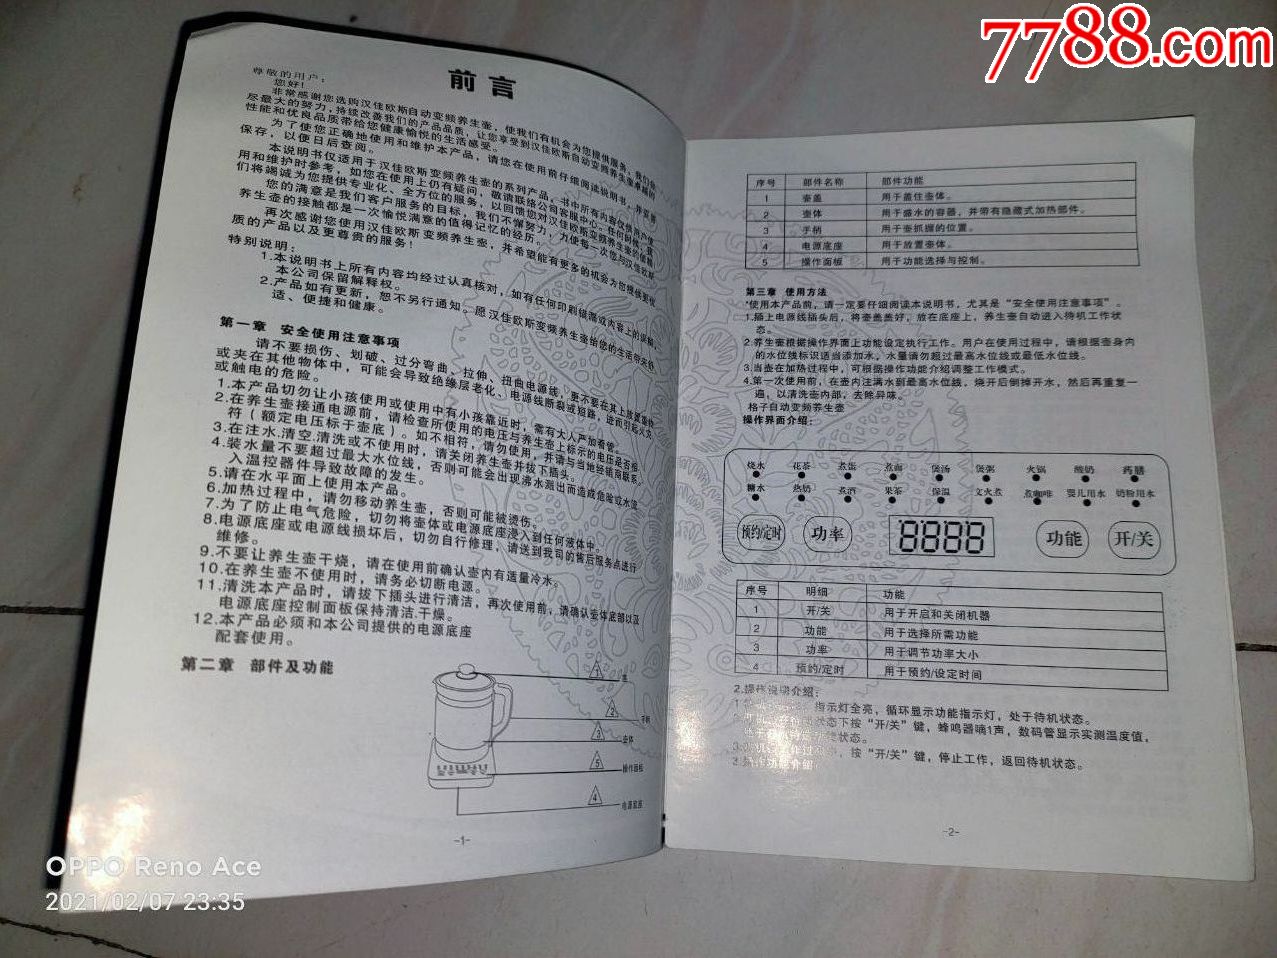 7788.com
前言
尊敬的用户：
您好！
非常感谢您选购汉佳欧斯自动变频养生壶，使我们有机会为您提供服务，我们会
尽最大的努力，持续改善我们的产品品质，让您享受到汉佳欧斯自动变频养生壶卓越的
性能和优良品质带给您健康愉悦的生活感受。
为了使您正确地使用和维护本产品，请您在使用前仔细阅读说明书，并妥善
保存，以便日后查阅。
本说明书仅适用于汉佳欧斯变频养生壶的系列产品，书中所有内容仅供用户使
用和维护时参考，如您在使用上仍有疑问，敬请联络公司客服中心，任何时候，我
们将竭诚为您提供专业化、全方位的服务，以回馈您对汉佳欧斯变频养生壶的信赖
您的满意是我们客户服务的目标，我们不懈努力，力使每一次您与汉佳欧斯
养生壶的接触都是一次愉悦满意的值得记忆的经历。
再次感谢您使用汉佳欧斯变频养生壶，并希望能有更多的机会为您提供更优
质的产品以及更尊贵的服务！
特别说明：
1.本说明书上所有内容均经过认真核对，如有任何印刷错漏或内容上的误解，
本公司保留解释权。
2.产品如有更新，恕不另行通知。愿汉佳欧斯变频养生壶给您的生活带来舒
适、便捷和健康。
第一章 安全使用注意事项
请不要损伤、划破、过分弯曲、拉伸、扭曲电源线，更不要在其上放置重物
或夹在其他物体中，可能会导致绝缘层老化、电源线断裂或短路，进而引起火灾
或触电的危险。
1.本产品切勿让小孩使用或使用中有小孩靠近时，需有大人严加看管。
2.在养生壶接通电源前，请检查所使用的电压与养生壶上标示的电压是否相
符（额定电压标于壶底）。如不相符，请勿使用，并请与当地经销商联系。
3.在注水.清空.清洗或不使用时，请关闭养生壶并拔下插头。
4.装水量不要超过最大水位线，否则可能会出现沸水溅出而造成危险或水流
入温控器件导致故障的发生。
5.请在水平面上使用本产品。
6.加热过程中，请勿移动养生壶，否则可能被烫伤。
7.为了防止电气危险，切勿将壶体或电源底座浸入到任何液体中。
8.电源底座或电源线损坏后，切勿自行修理，请送到我司的售后服务点进行
维修。
9.不要让养生壶干烧，请在使用前确认壶内有适量冷水。
10.在养生壶不使用时，请务必切断电源。
11.清洗本产品时，请拔下插头进行清洁，再次使用前，请确认壶体底部以及
电源底座控制面板保持清洁.干燥。
12.本产品必须和本公司提供的电源底座
配套使用。
第二章 部件及功能
1
2
手柄
3
壶体
5
操作面板
4
电源底座
-1-
序号 部件名称 部件功能
1 壶盖 用于盖住壶体。
2 壶体 用于盛水的容器，并带有隐藏式加热部件。
3 手柄 用于壶抓握的位置。
4 电源底座 用于放置壶体。
5 操作面板 用于功能选择与控制。
第三章 使用方法
*使用本产品前，请一定要仔细阅读本说明书，尤其是“安全使用注意事项”。
1.插上电源线插头后，将壶盖盖好，放在底座上，养生壶自动进入待机工作状
态。
2.养生壶根据操作界面上功能设定执行工作。用户在使用过程中，请根据壶身内
的水位线标识适当添加水，水量请勿超过最高水位线或最低水位线。
3.当壶在加热过程中，可根据操作功能介绍调整工作模式。
4.第一次使用前，在壶内注满水到最高水位线，烧开后倒掉开水，然后再重复一
遍，以清洗壶内部，去除异味。
格子自动变频养生壶
操作界面介绍：
烧水 花茶 煮蛋 煮面 煲汤 煲粥 火锅 酸奶 药膳
糖水 热奶 煮酒 果茶 保温 文火煮 煮咖啡 婴儿用水 奶粉用水
预约定时 功率 8888 功能 开/关
序号 明细 功能
1 开/关 用于开启和关闭机器
2 功能 用于选择所需功能
3 功率 用于调节功率大小
4 预约/定时 用于预约/设定时间
2.操作说明介绍：
指示灯全亮，循环显示功能指示灯，处于待机状态。
状态下按“开/关”键，蜂鸣器嘀1声，数码管显示实测温度值，
状态。
按“开/关”键，停止工作，返回待机状态。
3.操作功能介绍
-2-
OPPO Reno Ace
2021/02/07 23:35